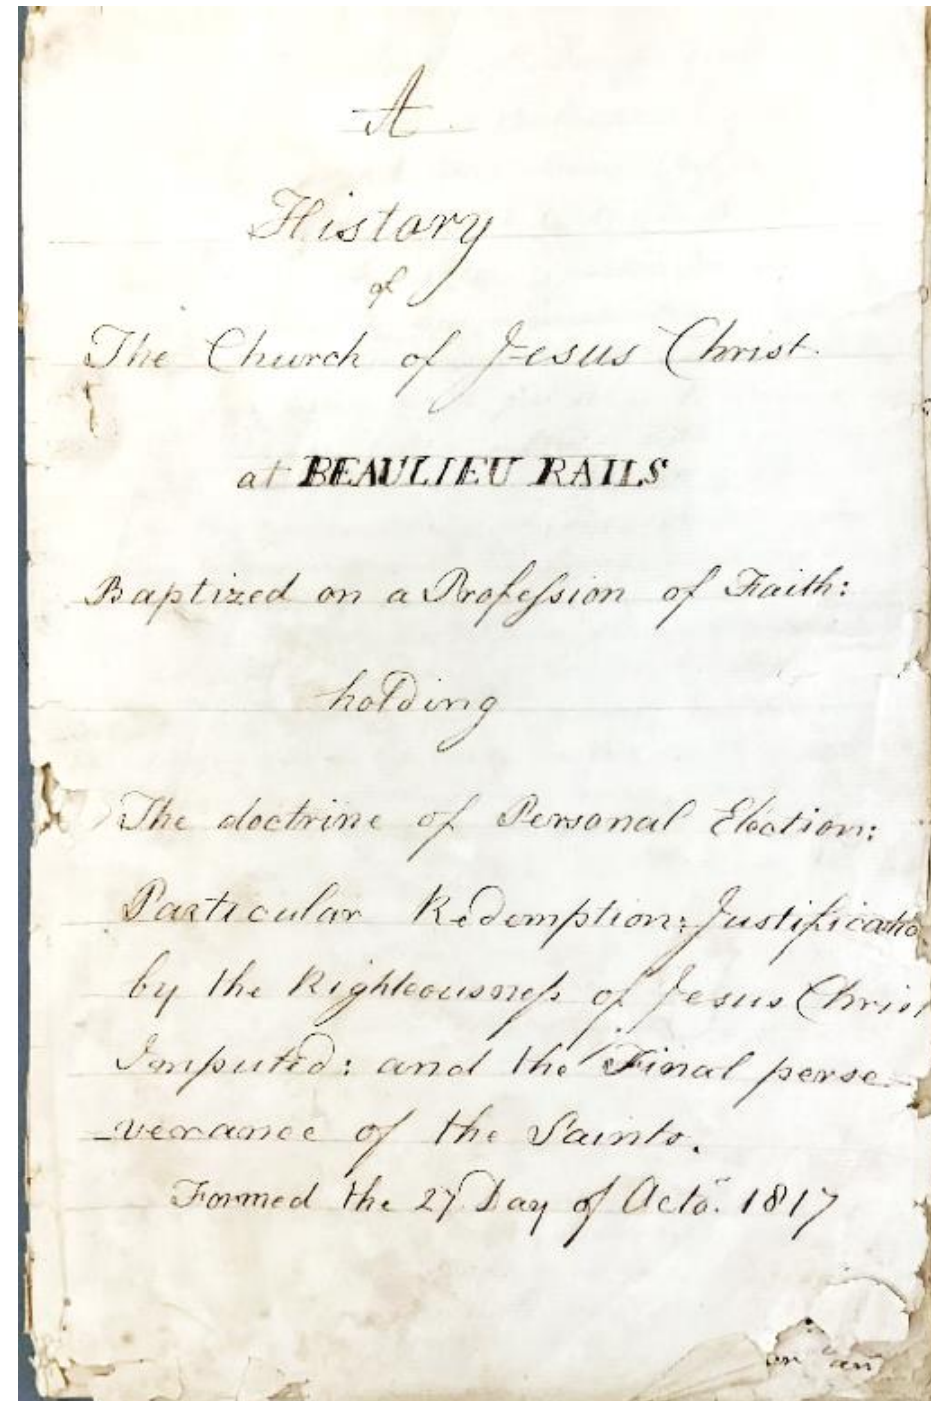 A
History
of
The Church of Jesus Christ.
at BEAULIEU RAILS
Baptized on a Profeſsion of Faith:
holding
The doctrine of Personal Election:
Particular Redemption: Justificatio
by the Righteousneſs of Jesus Chris
Imputed: and the Final perse-
-verance of the Saints.
Formed the 27 Day of Octo.r 1817
on an